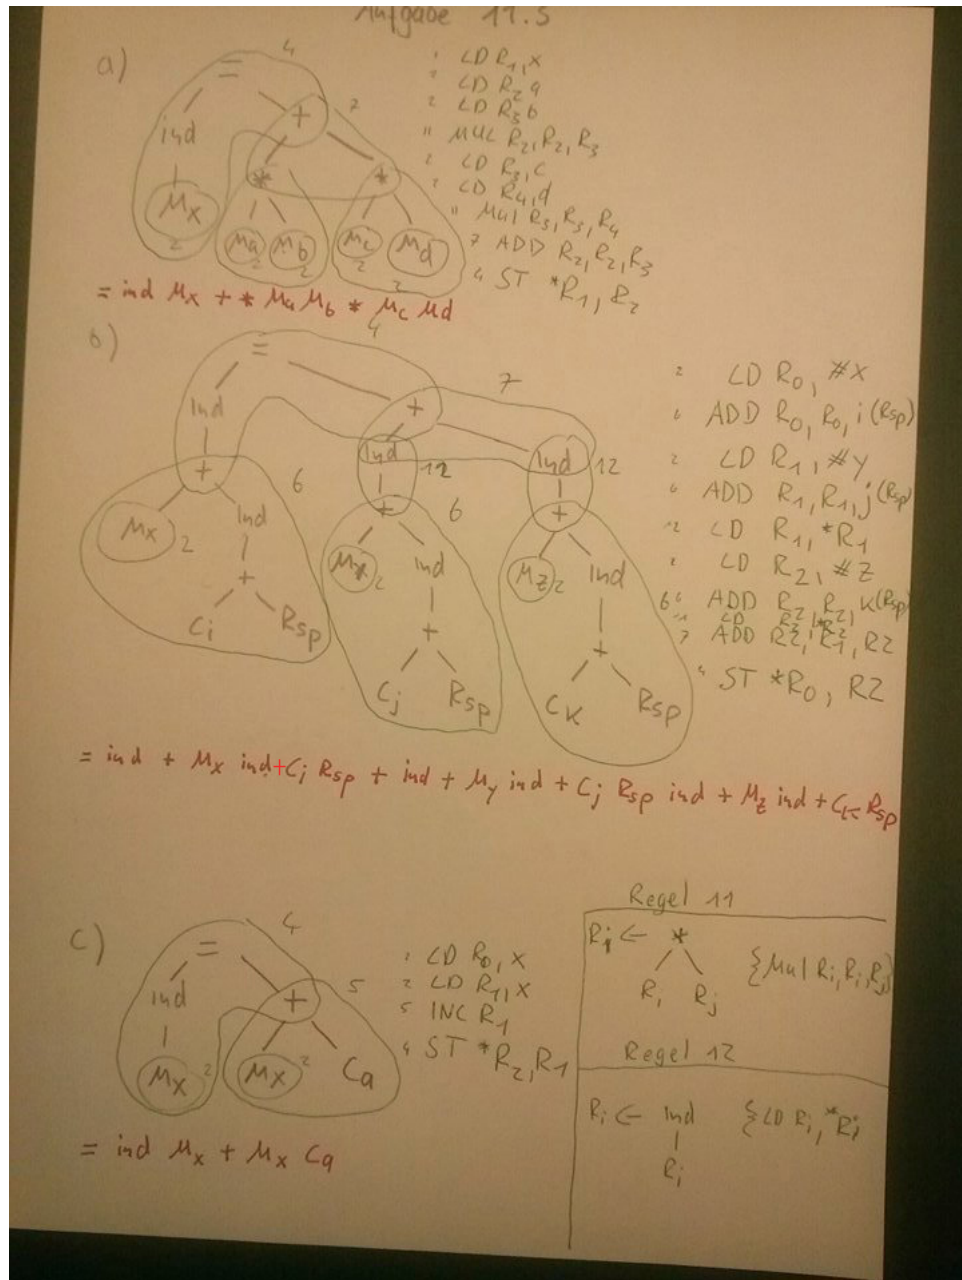 Aufgabe 11.3
a)
4
=
ind
+
7
Mx
2
*
*
Ma
2
Mb
2
Mc
2
Md
2
2 LD R1,x
2 LD R2 a
2 LD R3 b
11 MUL R2,R2,R3
2 LD R3,c
2 LD R4,d
11 Mul R3,R3,R4
7 ADD R2,R2,R3
4 ST *R1, R2
= ind Mx + * Ma Mb * Mc Md
b)
4
=
7
Ind
+
+
Ind
12
Ind
12
6
Mx
2
Ind
+
Ci
Rsp
+
6
2
ind
+
Cj
Rsp
+
Mz
2
Ind
+
CK
Rsp
6
2 LD R0, #X
6 ADD R0, R0, i(Rsp)
2 LD R1, #y
6 ADD R1,R1,j(Rsp)
12 LD R1, *R1
2 LD R2, #Z
6 ADD R2,R2,K(Rsp)
12 LD R2,*R2
7 ADD R2,R1,R2
4 ST *R0, R2
= ind + Mx ind+Ci Rsp + ind + My ind + Cj Rsp ind + Mz ind + CK Rsp
c)
4
=
ind
+
5
Mx
2
Mx
2
Ca
2 LD R0,x
2 LD R1,x
5 INC R1
4 ST *R2,R1
= ind Mx + Mx Ca
Regel 11
Ri ← *
Ri Rj
{Mul Ri,Ri,Rj}
Regel 12
Ri ← Ind
Ri
{LD Ri,*Ri